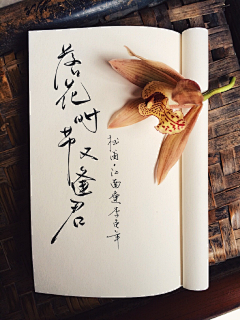 落花时节又逢君
摘自·江南逢李龟年